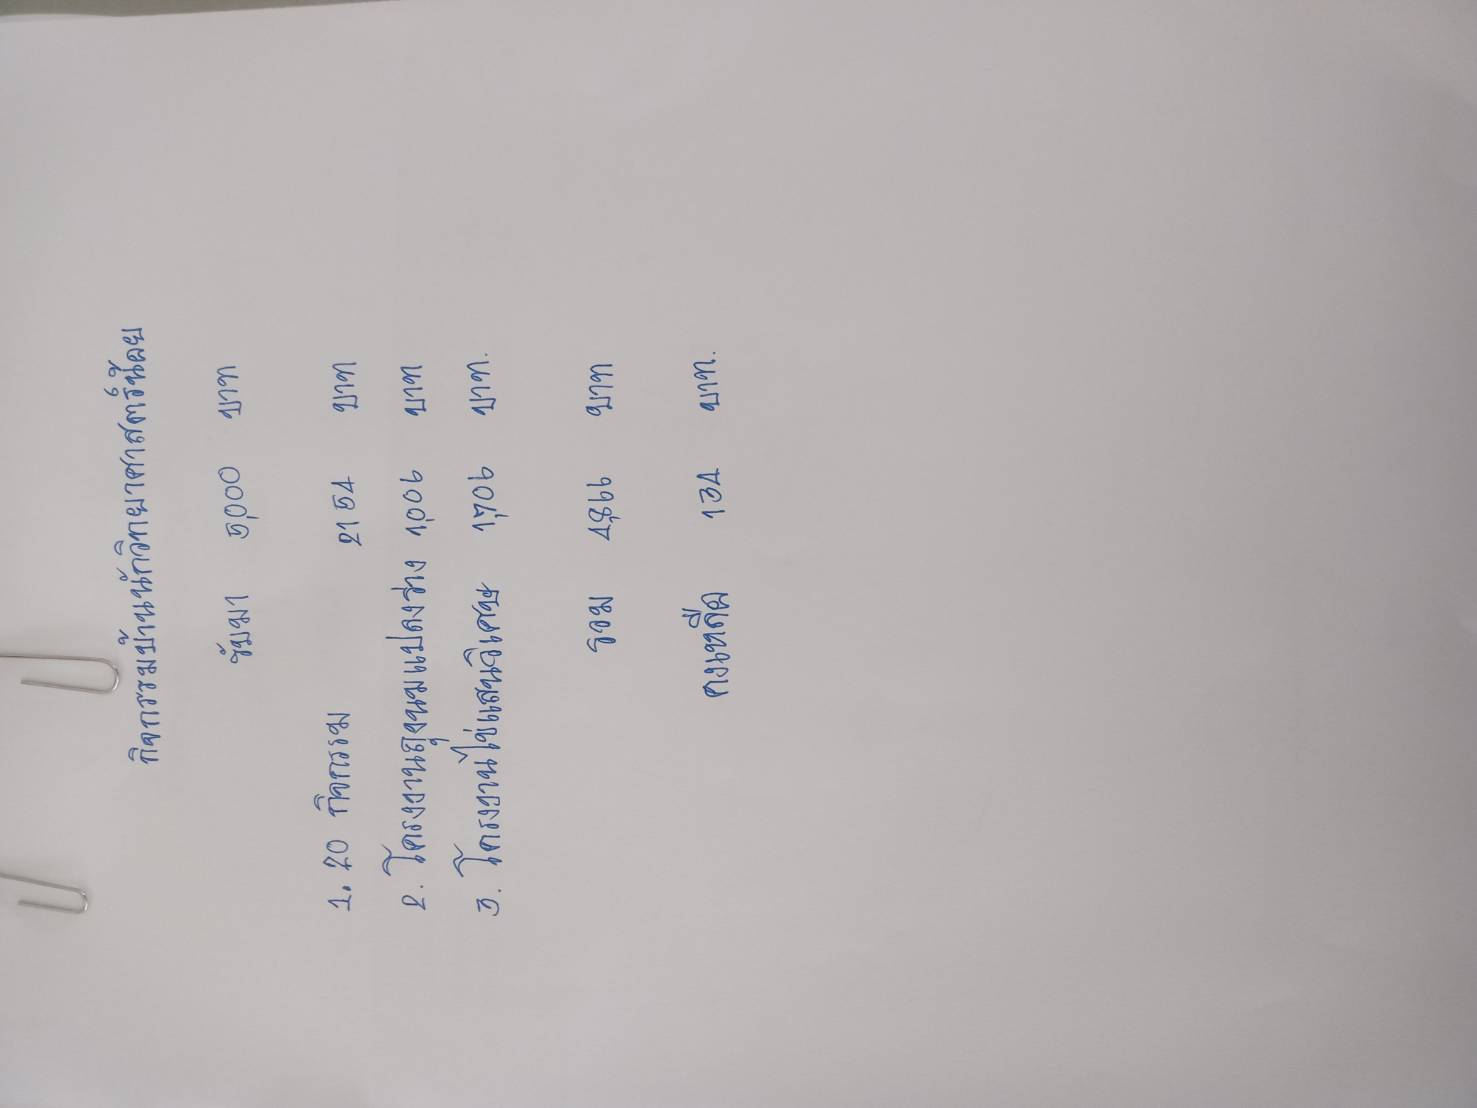 กิจกรรมบ้านนักวิทยาศาสตร์น้อย
รับมา 5,000 บาท
1. 20 กิจกรรม 2154 บาท
2. โครงงานถุงนมแปลงร่าง 1,006 บาท
3. โครงงานไข่แสนวิเศษ 1,706 บาท.
รวม 4,866 บาท
คงเหลือ 134 บาท.